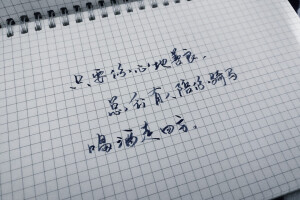 只要你心地善良,
总会有人陪你骑马
喝酒走四方.